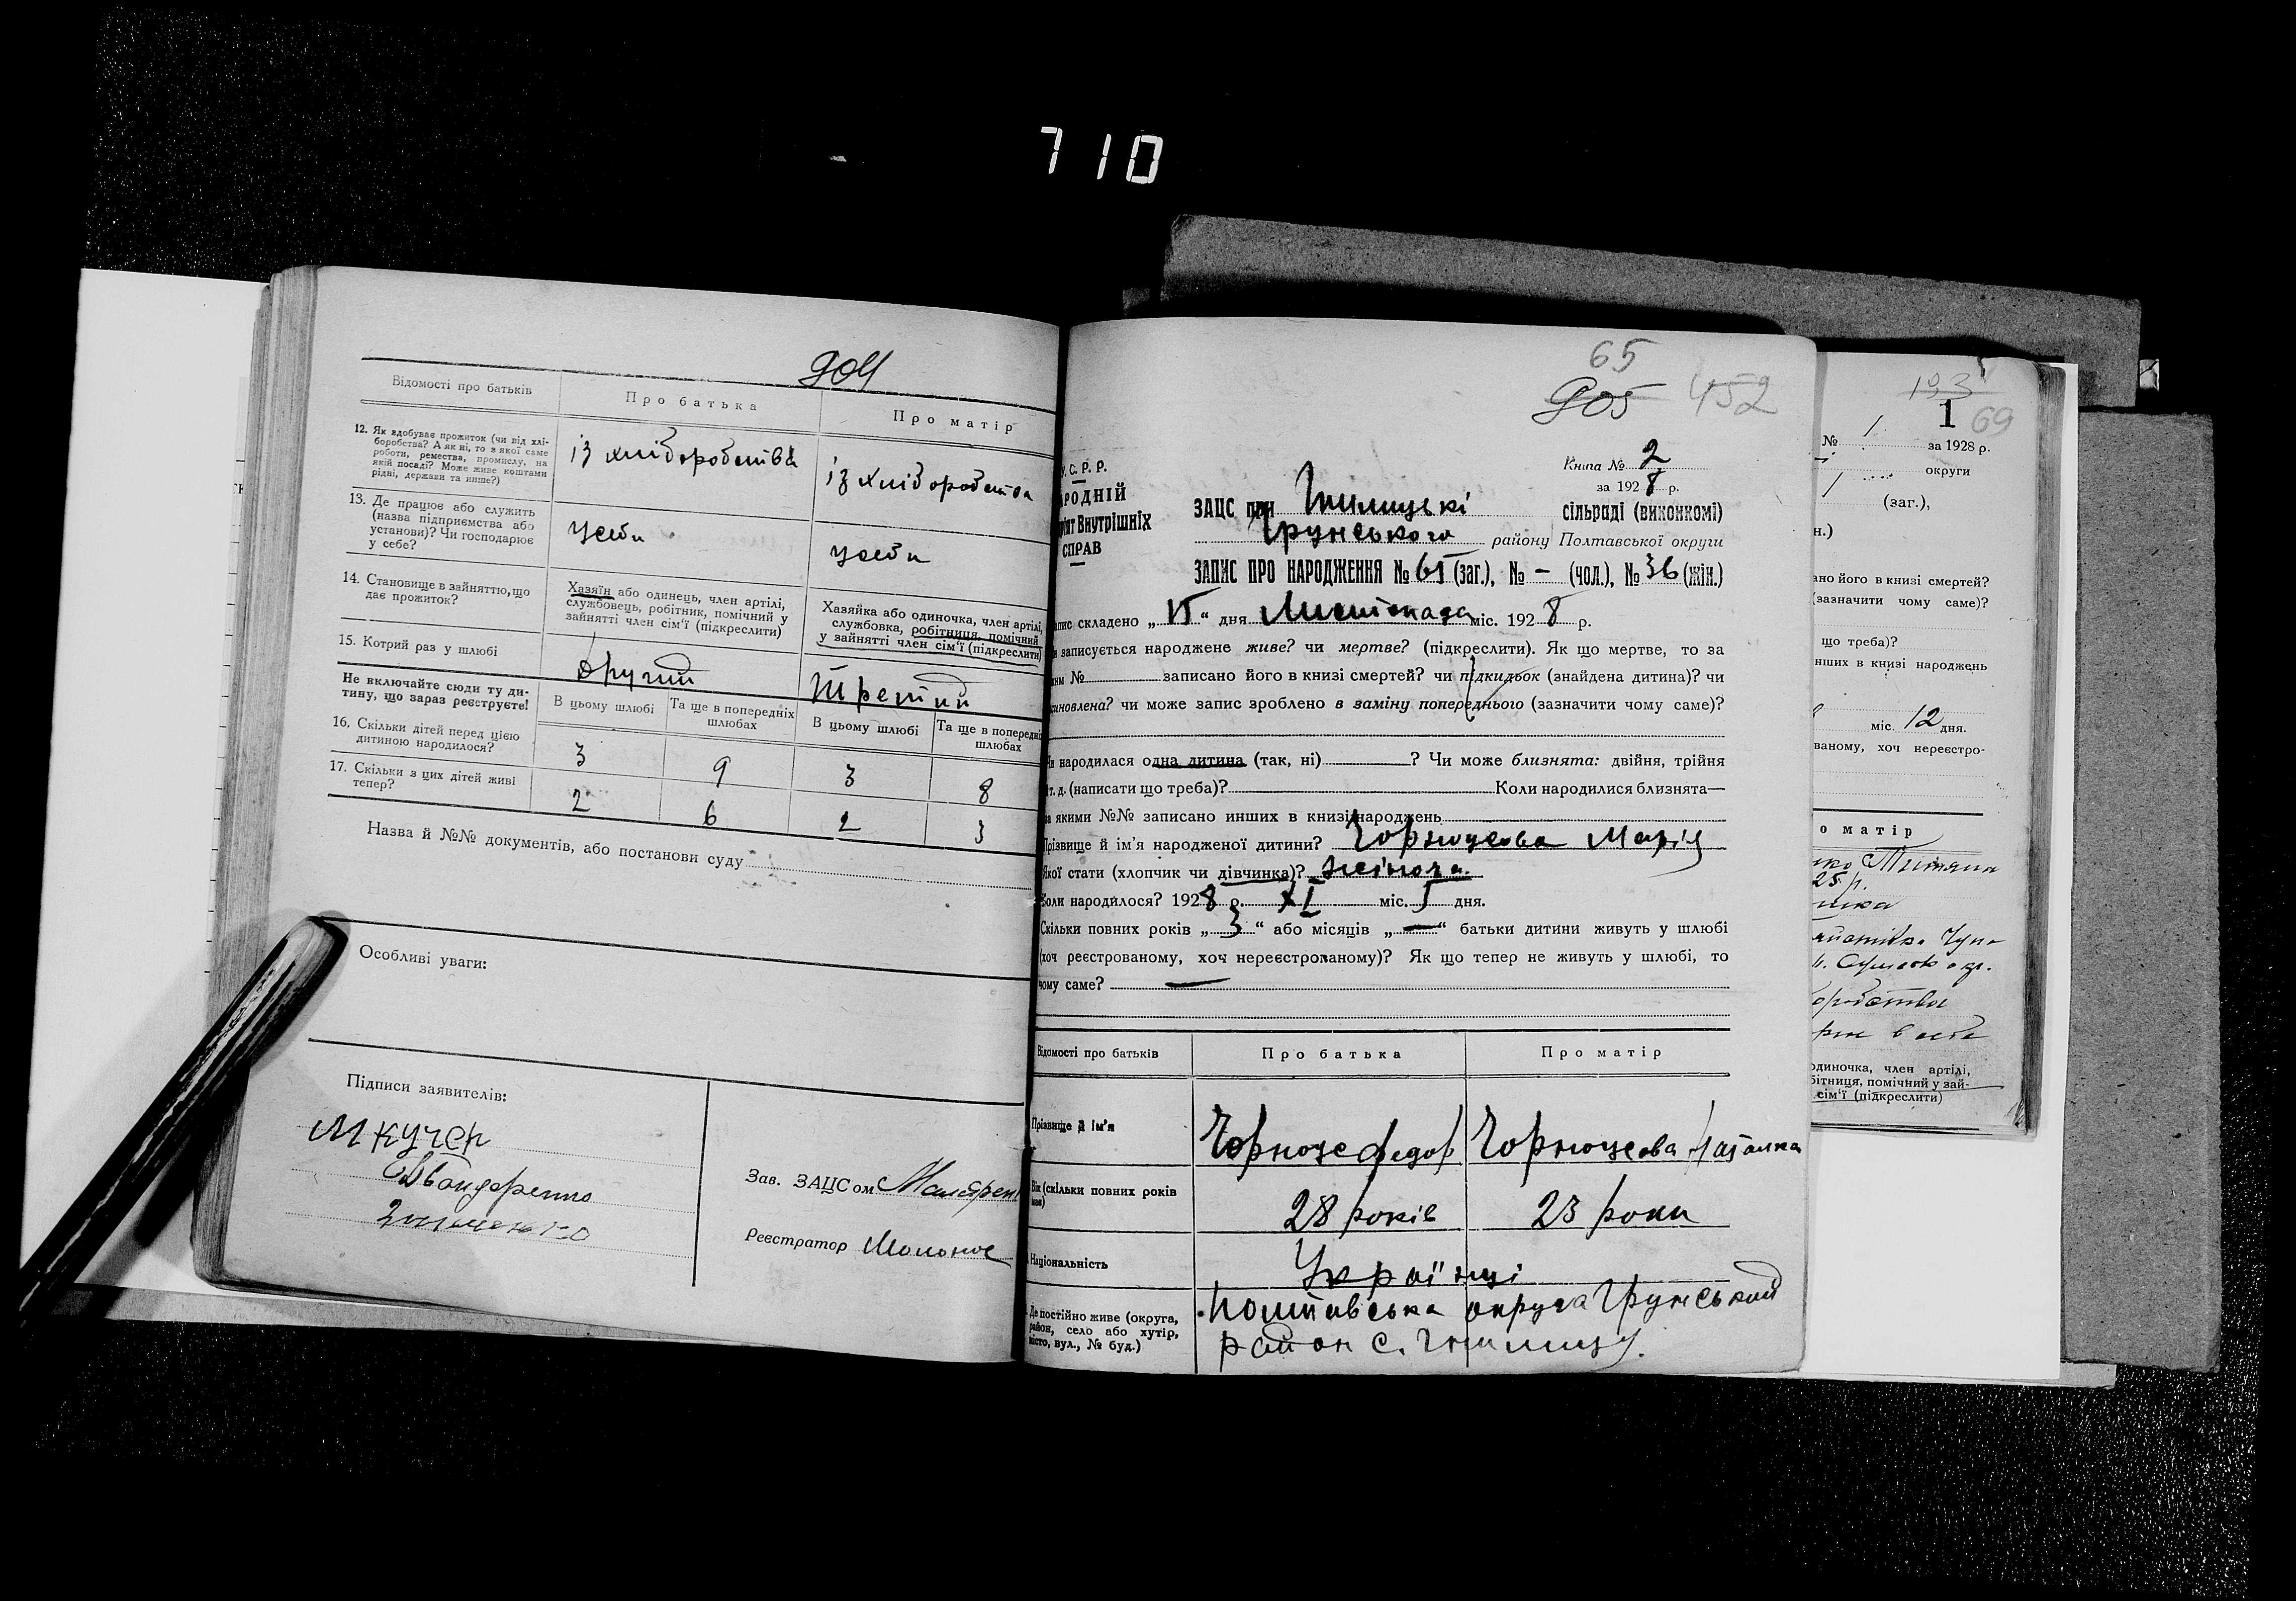 710
904
Відомості про батьків
Про батька
Про матір
12. Як здобуває прожиток (чи від хлі-
боробства? А як ні, то з якої саме
роботи, ремества, промислу, на
якій посаді? Може живе коштами
рідні, держави та инше?)
із хліборобства
із хліборобства
13. Де працює або служить
(назва підприємства або
установи)? Чи господарює
у себе?
у себи
у себи
14. Становище в зайняттю, що
дає прожиток?
Хазяїн або одинець, член артілі,
службовець, робітник, помічний у
зайнятті член сім'ї (підкреслити)
Хазяйка або одиночка, член артілі,
службовка, робітниця, помічний
у зайнятті член сім'ї (підкреслити)
15. Котрий раз у шлюбі
другий
третий
Не включайте сюди ту ди-
тину, що зараз реєструєте!
В цьому шлюбі
Та ще в попередніх
шлюбах
В цьому шлюбі
Та ще в попередні
шлюбах
16. Скільки дітей перед цією
дитиною народилося?
3 9 3 8
17. Скільки з цих дітей живі
тепер?
2 6 2 3
Назва й №№ документів, або постанови суду
Особливі уваги:
Підписи заявителів:
М кучер
Зав. ЗАЦСом
Реєстратор
65
905 452
У. С. Р. Р.
РОДНІЙ
ят Внутрішніх
СПРАВ
Книга № 2
за 1928 р.
ЗАЦС при Гнилицькі сільраді (виконкомі)
Грунського району Полтавської округи
ЗАПИС ПРО НАРОДЖЕННЯ № 65 (заг.), № – (чол.), № 36 (жін.)
апис складено „ “ дня Листопада міс. 1928 р.
и записується народжене живе? чи мертве? (підкреслити). Як що мертве, то за
ким № записано його в книзі смертей? чи підкидьок (знайдена дитина)? чи
новлена? чи може запис зроблено в заміну попереднього (зазначити чому саме)?
и народилася одна дитина (так, ні) ? Чи може близнята: двійня, трійня
т. д. (написати що треба)? Коли народилися близнята—
а якими №№ записано инших в книзі народжень
різвище й ім'я народженої дитини? Чорноусова Марія
кої стати (хлопчик чи дівчинка)? жіноча
оли народилося? 1928 р. XI міс. 5 дня.
Скільки повних років „ 3 “ або місяців „ — “ батьки дитини живуть у шлюбі
(хоч реєстрованому, хоч нереєстрованому)? Як що тепер не живуть у шлюбі, то
чому саме? —
Відомості про батьків
Про батька
Про матір
Прізвище й ім'я
Федор
Чорноусова Наталка
Вік (скільки повних років
має)
28 років
23 роки
Національність
Українці
Де постійно живе (округа,
район, село або хутір,
місто, вул., № буд.)
Полтавська округа Грунський
район с. Гнилиця.
193
1 69
№ 1 за 1928 р.
округи
(заг.),
н.)
ано його в книзі смертей?
(зазначити чому саме)?
що треба)?
нших в книзі народжень
міс. 12 дня.
ваному, хоч нереєстро-
о матір
25 р.
одиночка, член артілі,
бітниця, помічний у зай-
сім'ї (підкреслити)